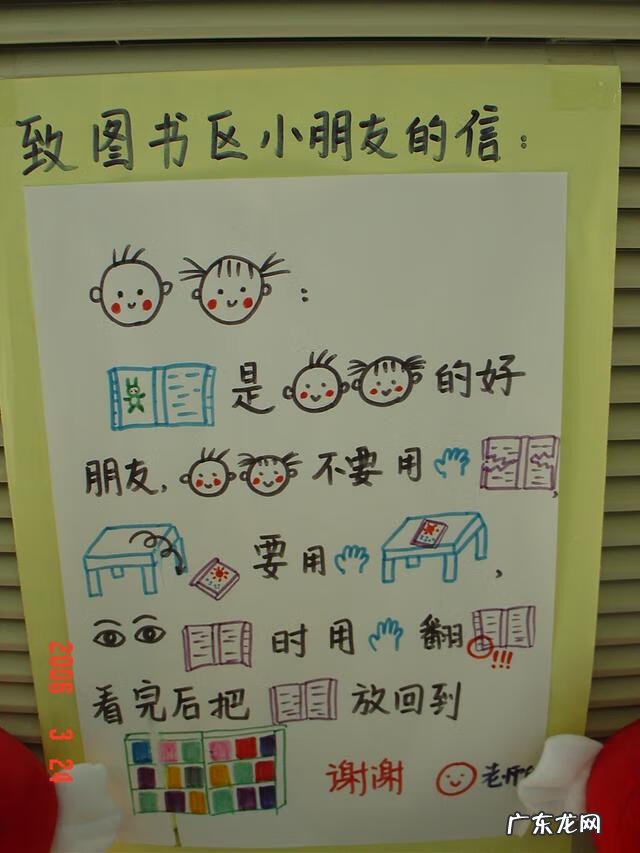 致图书区小朋友的信:
:
是 的好
朋友, 不要用 ,
要用 ,
时用 翻 !!!
看完后把 放回到
谢谢 老师
2006 3 24
广东龙网